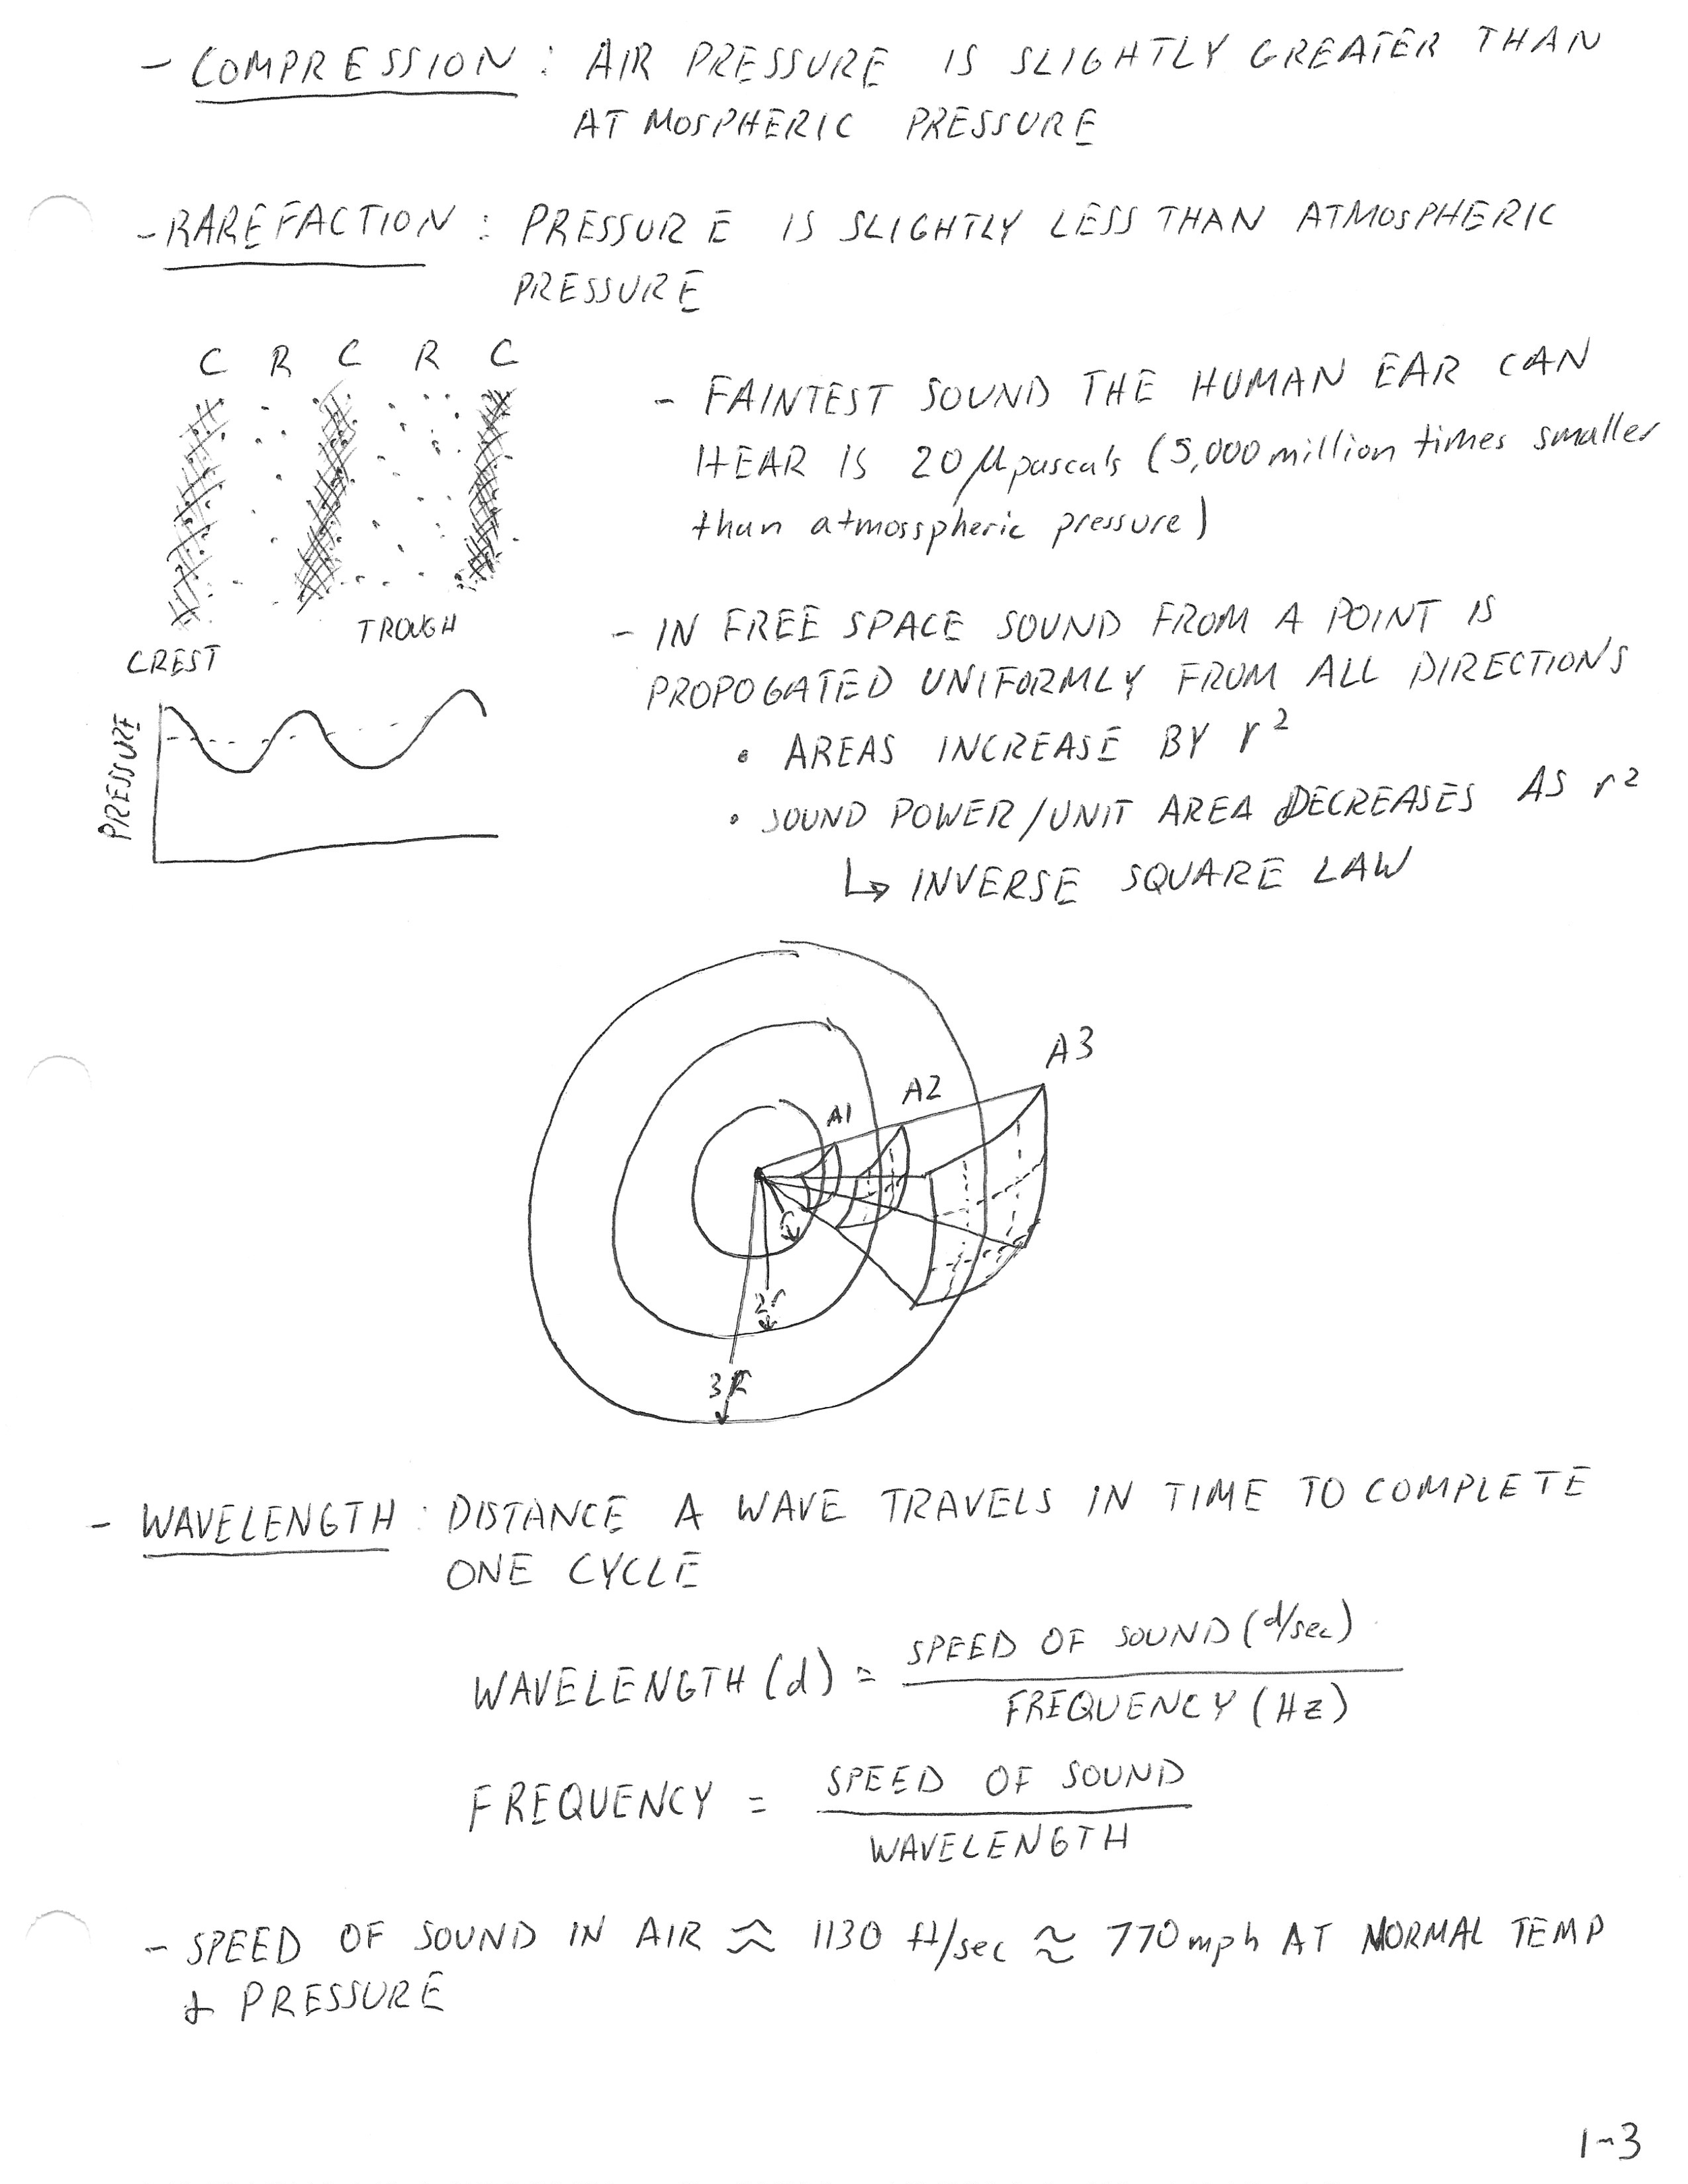 - COMPRESSION : AIR PRESSURE IS SLIGHTLY GREATER THAN
ATMOSPHERIC PRESSURE
- RAREFACTION : PRESSURE IS SLIGHTLY LESS THAN ATMOSPHERIC
PRESSURE
C R C R C
- FAINTEST SOUND THE HUMAN EAR CAN
HEAR IS 20 μpascals (5,000 million times smaller
than atmosspheric pressure)
TROUGH
CREST
PRESSURE
- IN FREE SPACE SOUND FROM A POINT IS
PROPOGATED UNIFORMLY FROM ALL DIRECTIONS
• AREAS INCREASE BY r²
• SOUND POWER/UNIT AREA DECREASES AS r²
↳ INVERSE SQUARE LAW
A3
A2
A1
r
2r
3R
- WAVELENGTH : DISTANCE A WAVE TRAVELS IN TIME TO COMPLETE
ONE CYCLE
WAVELENGTH (d) = SPEED OF SOUND (d/sec)
FREQUENCY (Hz)
FREQUENCY = SPEED OF SOUND
WAVELENGTH
- SPEED OF SOUND IN AIR ≈ 1130 ft/sec ≈ 770 mph AT NORMAL TEMP
+ PRESSURE
1-3